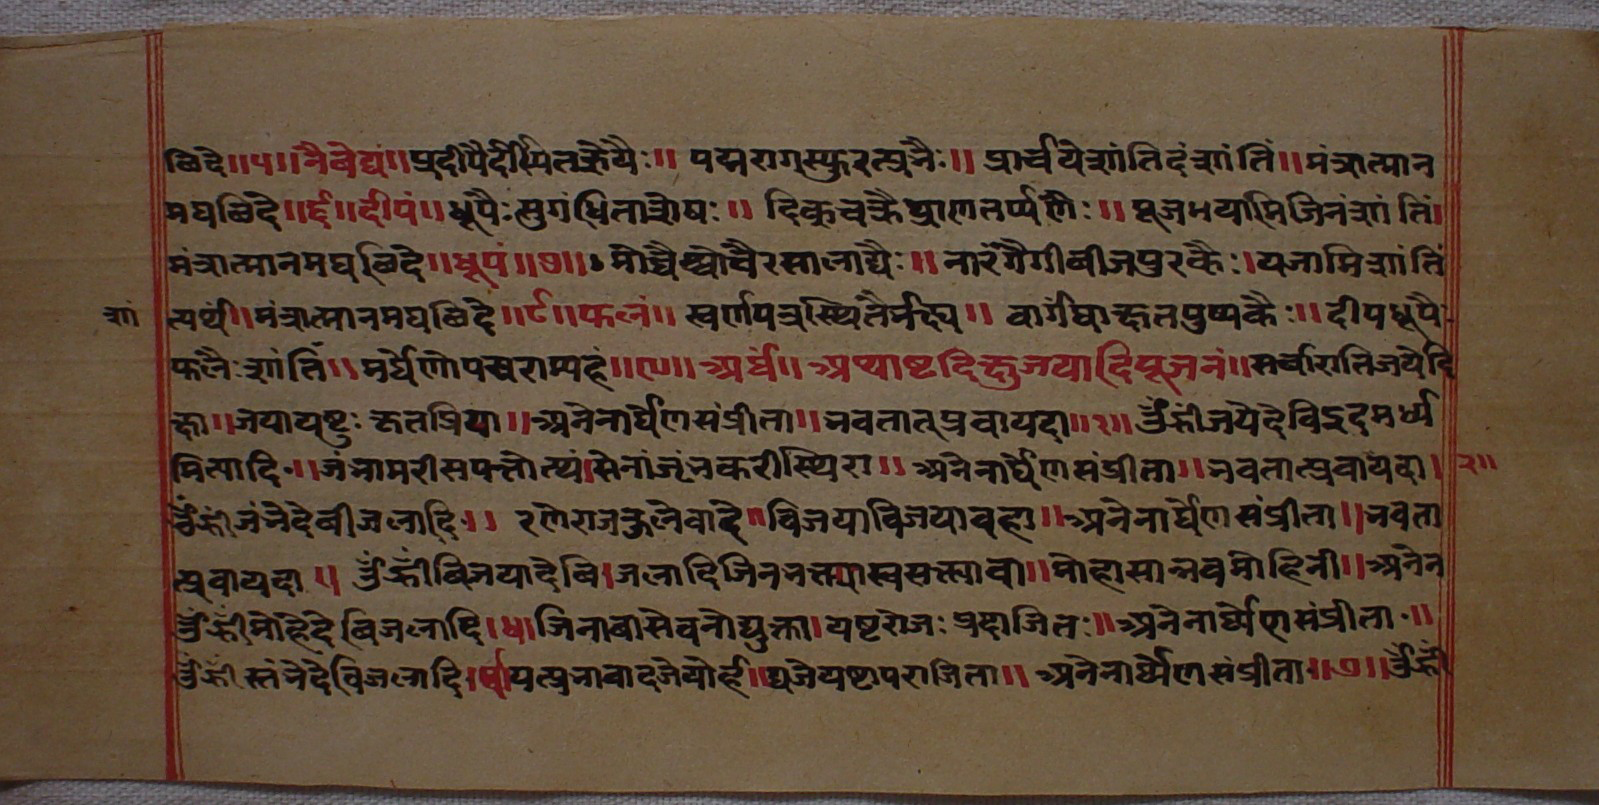 छिदे॥५॥नैवेद्यं॥प्रदीपैर्दीपितज्ञेयैः॥ पद्मरागस्फुरत्प्रभैः॥ प्रार्चयेशांतिदंशांतिं॥मंत्रात्मान
मघछिदे॥६॥दीपं॥धूपैःसुगंधिताशेषः॥ दिक्चक्रैघ्राणतर्प्पणैः॥ पूजमयामिजिनंशांतिं।
मंत्रात्मानमघछिदे॥धूपं॥७॥ मोचैश्चोचैरसालाद्यैः॥ नारंगैर्गीबीजपुरकैः।यजामिशांतिं
शां त्यर्थी॥मंत्रात्मानमघछिदे॥८॥फलं॥ स्वर्णपत्रस्थितै वार्गंधाक्षतपुष्पकैः॥दीपधूपै
फलैःशांतिं॥मर्घेणोपस्चराम्पहं॥९॥अर्घं॥अथाष्टदिक्षुजयादिपूजनं॥सर्वारातिजयेदि
क्षा॥जयायष्टुः कृतप्रिया॥अनेनार्घेणसंप्रीता॥भवतात्प्रवायदा॥१॥ॐह्रीजयेदेविइदमर्ध्य
मित्यादि॥जंभामरीसफलोत्यं।सेनांजृंभकरीस्थिरा॥ अनेनार्घेणसंप्रीता॥भवतात्प्रवायदा।२॥
ॐह्रींजंभेदेबीजलादि॥ रणेराजकुलेवादे॥विजयाविजयावहा॥अनेनार्घेणसंप्रीता॥भवता
त्प्रवायदा॥ ॐह्रींबिजयादेबि।जलादिजिनभक्त्या मोहासान्नवमोहिनी॥अनेन
ॐह्रींमोहेदेबिजलादि। जिनावासेवनोद्युक्ता।यष्टरोजः अनेनार्घ्येणसंप्रीता॥
ॐह्रीं स्तंभेदेविजलादि। यत्प्रभावादजेयोर्ह॥द्यजेयष्टापराजिता॥ अनेनार्घ्येणसंप्रीता॥७॥ॐह्रीं